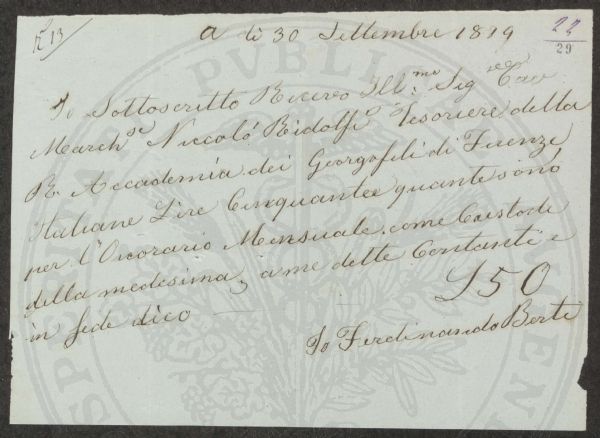 N 13
22
29
A dì 30 Settembre 1879
Io Sottoscritto Ricevo Ill.mo Sig. Cav
March.se Niccoló Ridolfi Tesoriere della
R. Accademia dei Georgofeli di Firenze
Italiane Lire Cinquanta quante sono
per l'Onorario Mensuale, come Custode
della medesima, a me dette Contanti e
in fede dico
£50
Io Ferdinando Berti
PUBLICAE